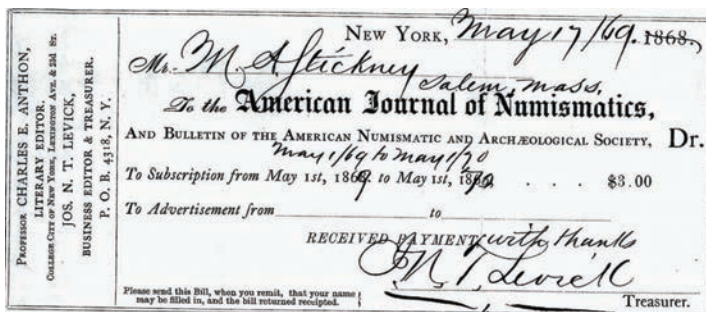 PROFESSOR CHARLES E. ANTHON,
LITERARY EDITOR.
COLLEGE CITY OF NEW YORK, LEXINGTON AVE. & 23d ST.
JOS. N. T. LEVICK,
BUSINESS EDITOR & TREASURER.
P. O. B. 4318, N. Y.
NEW YORK, May 17/69. 1868.
Mr. M. A. Stickney
Salem, Mass.
To the American Journal of Numismatics,
AND BULLETIN OF THE AMERICAN NUMISMATIC AND ARCHÆOLOGICAL SOCIETY, Dr.
May 1/69 to May 1/70
To Subscription from May 1st, 1869. to May 1st, 1870 . . . . $3.00
To Advertisement from to
RECEIVED PAYMENT, with thanks
J. N. T. Levick
Treasurer.
Please send this Bill, when you remit, that your name
may be filled in, and the bill returned receipted.